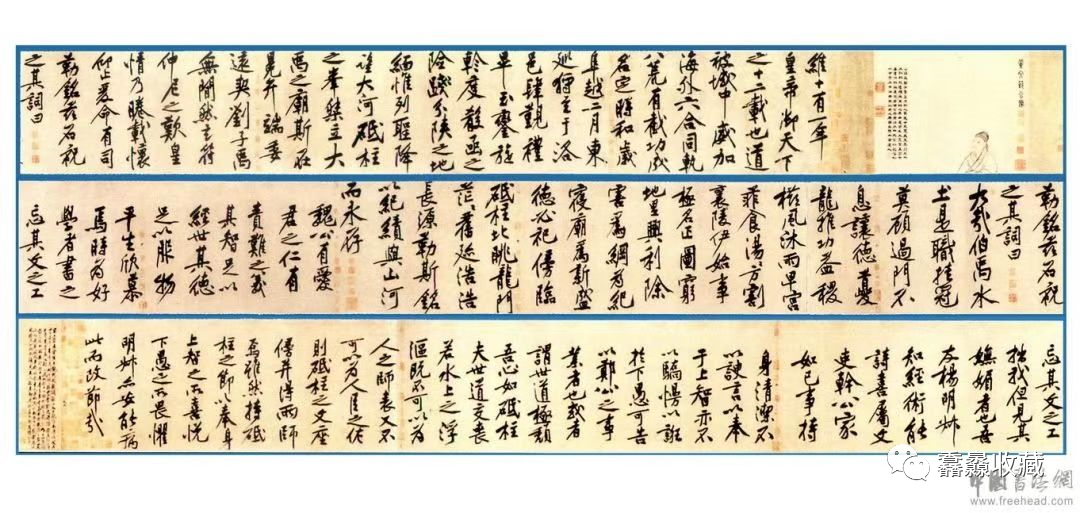 維十有一年
皇帝御天下
之十二載也道
被域中威加
海外六合同軌
八荒有截功成
名定時和歲
阜越二月東
巡狩至于洛
邑肆觀禮
畢玉鑾旋
軫度殽函之
險踐分陜之地
緬惟列聖降
望大河砥柱
之峯桀立大
禹之廟斯在
冕弁端委
遠契劉子禹
無閒然玄符
仲尼之歎皇
情乃睠載懷
仰止爰命有司
勒銘茲石祝
之其詞曰
勒銘茲石祝
之其詞曰
大哉伯禹水
土是職挂冠
莫顧過門不
息讓德夔
龍推功益稷
櫛風沐雨卑宮
菲食湯〻方割
襄陵伊始事
極名正圖窮
地里興利除
害爲綱爲紀
寢廟爲新盛
德必祀傍臨
砥柱北眺龍門
茫〻舊迹浩浩
長源勒斯銘
以紀績與山河
而永存
魏公有愛
君之仁有
責難之義
其智足以
經世其德
足以服物
平生欣慕
焉時爲好
學者書之
忘其文之工
忘其文之工
拙我但見其
嫵媚者也吾
友楊明叔
知經術能
詩喜屬文
吏幹公家
如己事持
身清潔不
以諛言以奉
于上智亦不
以驕慢以誑
於下愚可告
以鄭公之事
業者也或者
謂世道極頹
吾心如砥柱
夫世道交喪
若水上之浮
漚既不可以爲
人之師表又不
可以爲人臣之佐
則砥柱之文座
傍并得兩師
焉雖然持砥
柱之節以奉身
上智之所喜悅
下愚之所畏懼
明叔亦安能病
此而改節哉
羴鱻收藏
中國書法網
www.freehead.com